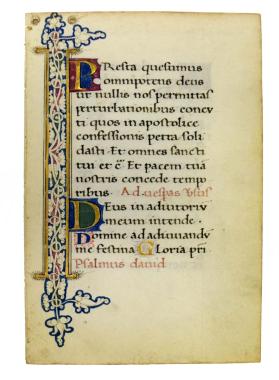 PResta quesumus
omnipotens deus
ut nullis nos permittas
perturbationibus concu
ti quos in apostolice
confessionis petra soli
dasti· Et omnes sancti
tui et c̄· Et pacem tuā
nostris concede temp
ribus· Ad uespas Usus
DEus in adiutoriū
meum intende·
Domine ad adiuuandū
me festina Gloria pri
Psalmus dauid